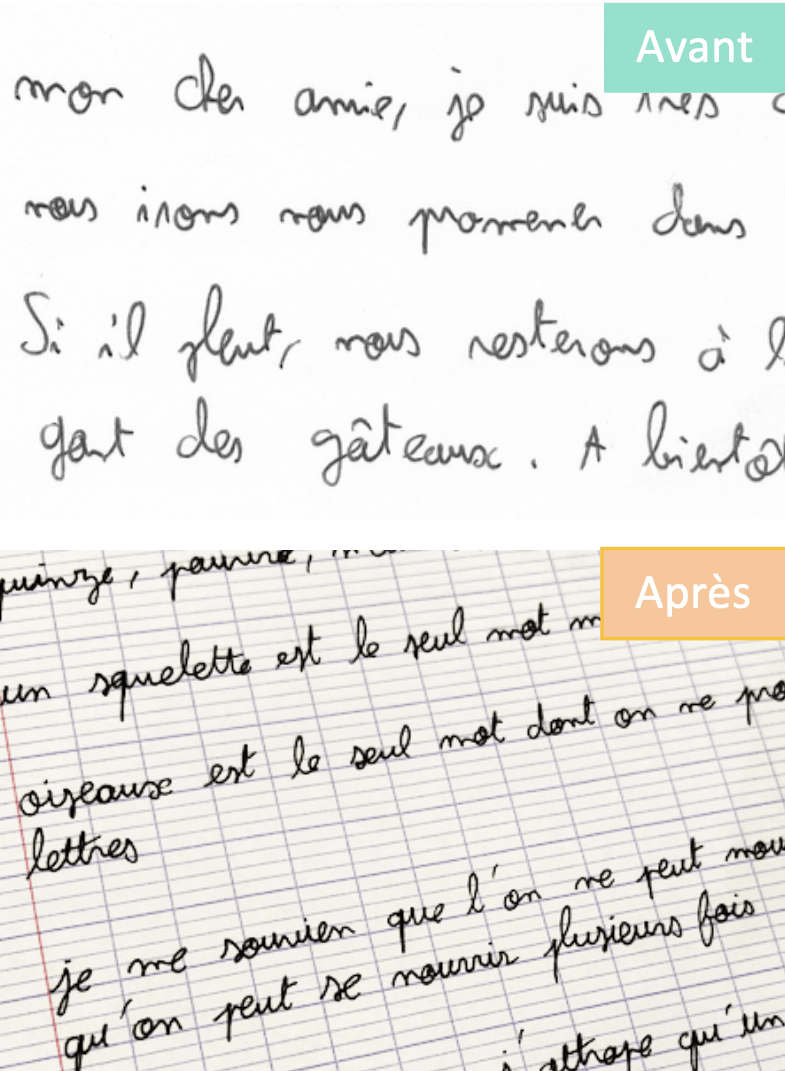 Avant
mon cher amie, je suis très
nous irons nous promener dans
Si il pleut, nous resterons à l
gant des gâteaux. A bientôt
Après
quinze, pauvre,
un squelette est le seul mot m
oiseause est le seul mot dont on ne pro
lettres
je me souvien que l'on ne peut mou
qu'on peut se nourrir plusieurs fois
j'attrape qu'un